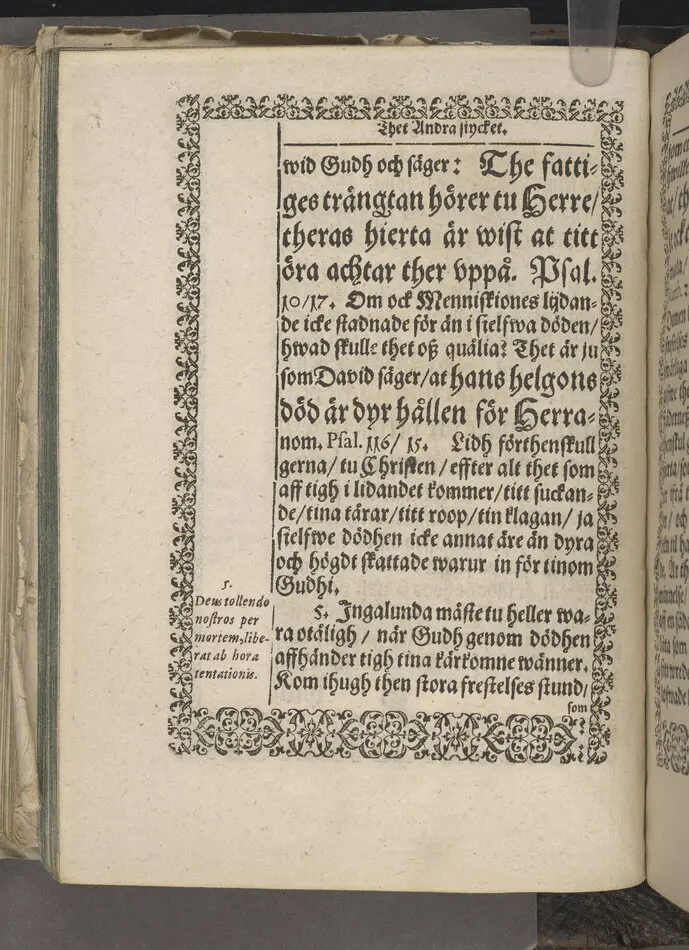 Thet Andra stycket.
wid Gudh och säger: The fatti-
ges trångtan hörer tu Herre/
theras hierta är wist at titt
öra achtar ther vppå. Psal.
10/17. Om ock Menniskiones lijdan-
de icke stadnade för än i sielfwa döden/
hwad skulle thet oß quälia? Thet är ju
som David säger/at hans helgons
död är dyr hållen för Herra-
nom. Psal. 116/ 15. Lidh förthenskull
gerna/ tu Christen/ effter alt thet som
aff tigh i lidandet kommer/titt suckan-
de/tina tårar/titt roop/tin klagan/ ja
sielfwe dödhen icke annat äre än dyra
och högdt skattade warur in för tinom
Gudhi.
5.
Deus tollendo
nostros per
mortem, libe-
rat ab hora
tentationis.
5. Ingalunda måste tu heller wa-
ra otåligh / när Gudh genom dödhen
affhänder tigh tina kärkomne wänner.
Kom ihugh then stora frestelses stund/
som